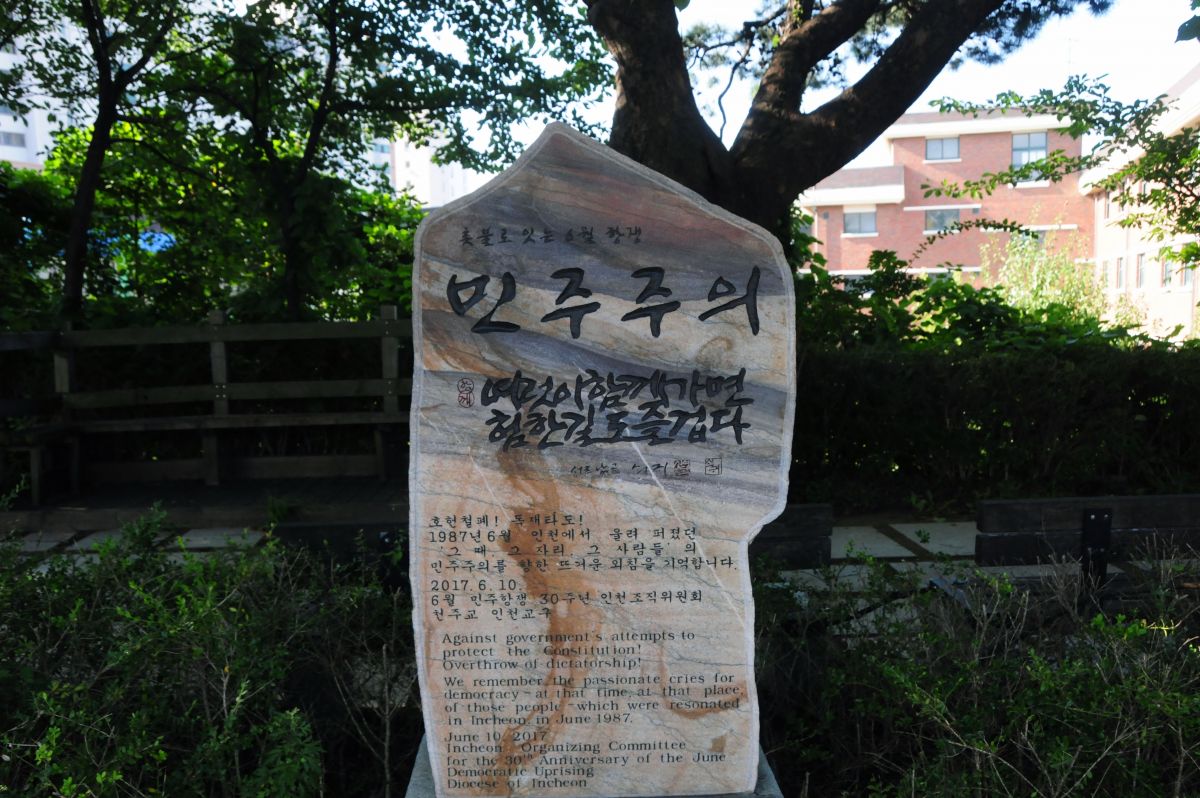 촛불로 잇는 6월 항쟁
민주주의
여럿이 함께 가면
험한 길도 즐겁다
호헌철폐! 독재타도!
1987년 6월 인천에서 울려 퍼졌던
'그 때, 그 자리, 그 사람들'의
민주주의를 향한 뜨거운 외침을 기억합니다.
2017. 6. 10.
6월 민주항쟁 30주년 인천조직위원회
천주교 인천교구
Against government's attempts to
protect the Constitution!
Overthrow of dictatorship!
We remember the passionate cries for
democracy - at that time, at that place,
of those people - which were resonated
in Incheon, in June 1987.
June 10, 2017
Incheon Organizing Committee
for the 30th Anniversary of the June
Democratic Uprising
Diocese of Incheon